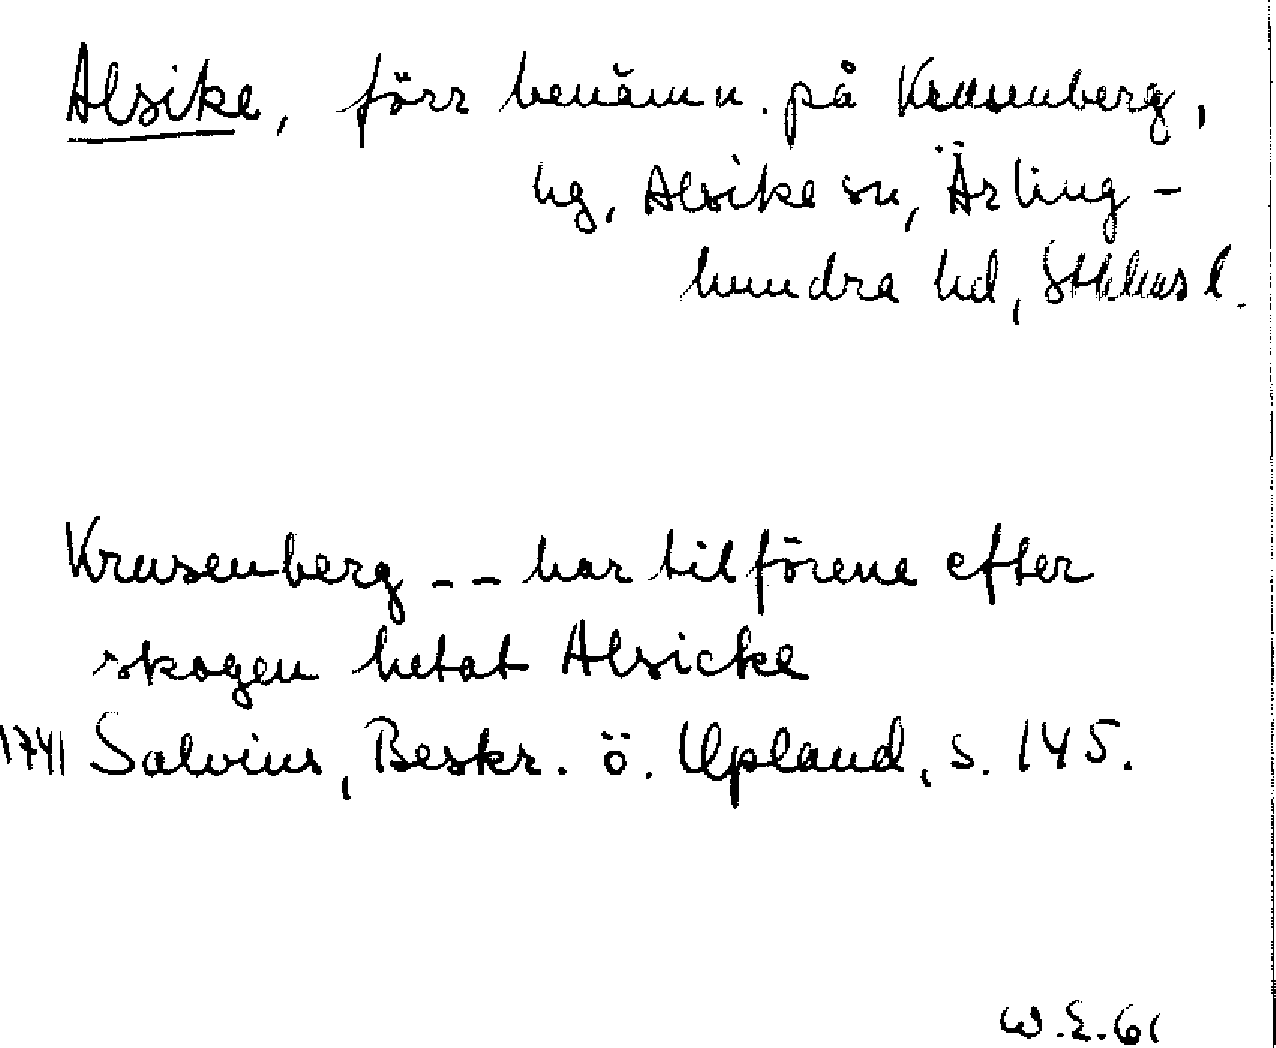 Alsike, förr benämn. på Krusenberg,
hg, Alsike sn, Ärling-
hundra hd, Sthlms l.
Krusenberg -- har tilförene efter
skogen hetat Alsicke
1741 Salvius, Beskr. ö. Upland, s. 145.
W.E.61